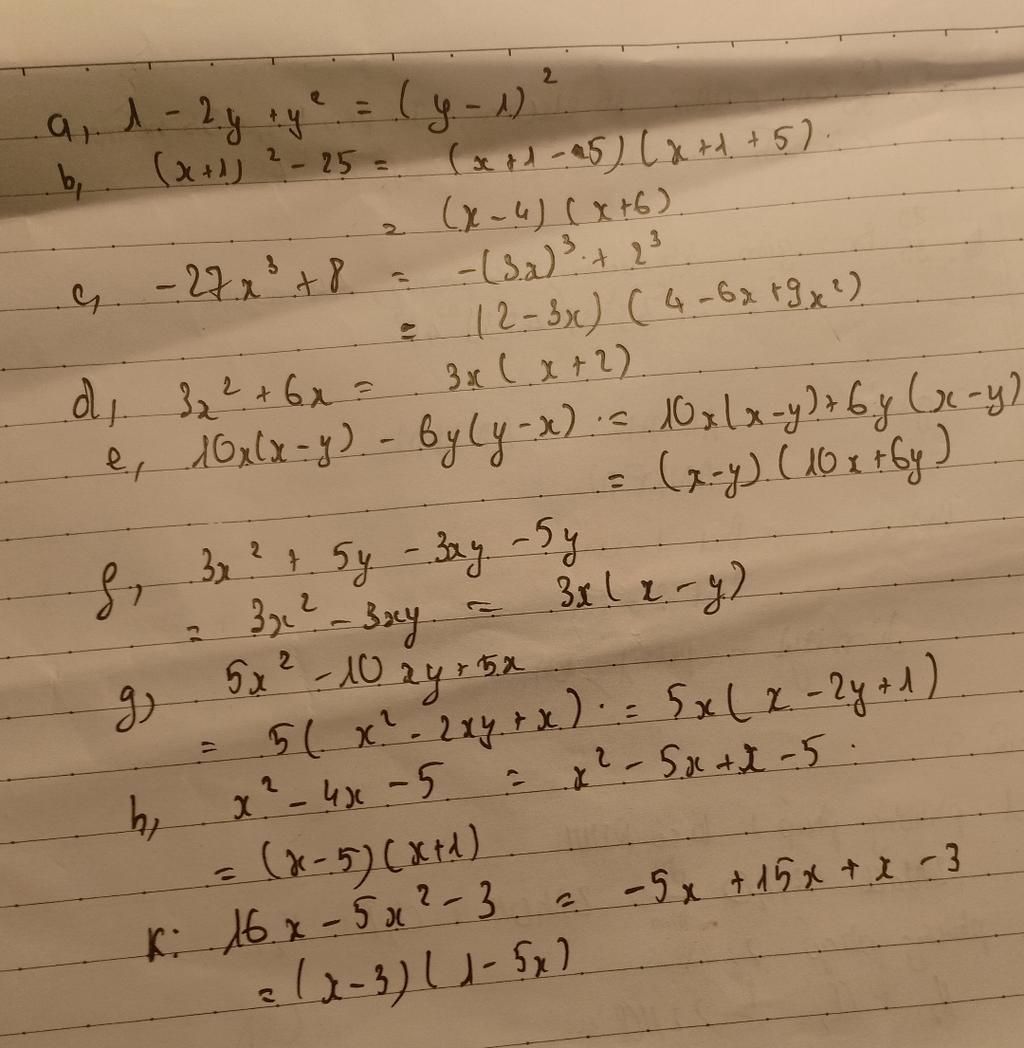 a, 1 - 2y + y² = (y - 1)²
b, (x+1)² - 25 = (x+1-5)(x+1+5).
= (x-4)(x+6)
c, -27x³ + 8 = -(3x)³ + 2³
= (2-3x)(4-6x+9x²)
d, 3x² + 6x = 3x(x+2)
e, 10x(x-y) - 6y(y-x) = 10x(x-y)+6y(x-y)
= (x-y)(10x+6y)
f, 3x² + 5y - 3xy - 5y
= 3x² - 3xy = 3x(x-y)
g, 5x² - 10xy + 5x
= 5(x² - 2xy + x) = 5x(x - 2y + 1)
h, x² - 4x - 5 = x² - 5x + x - 5.
= (x-5)(x+1)
k: 16x - 5x² - 3 = -5x + 15x + x - 3
= (x-3)(1-5x)